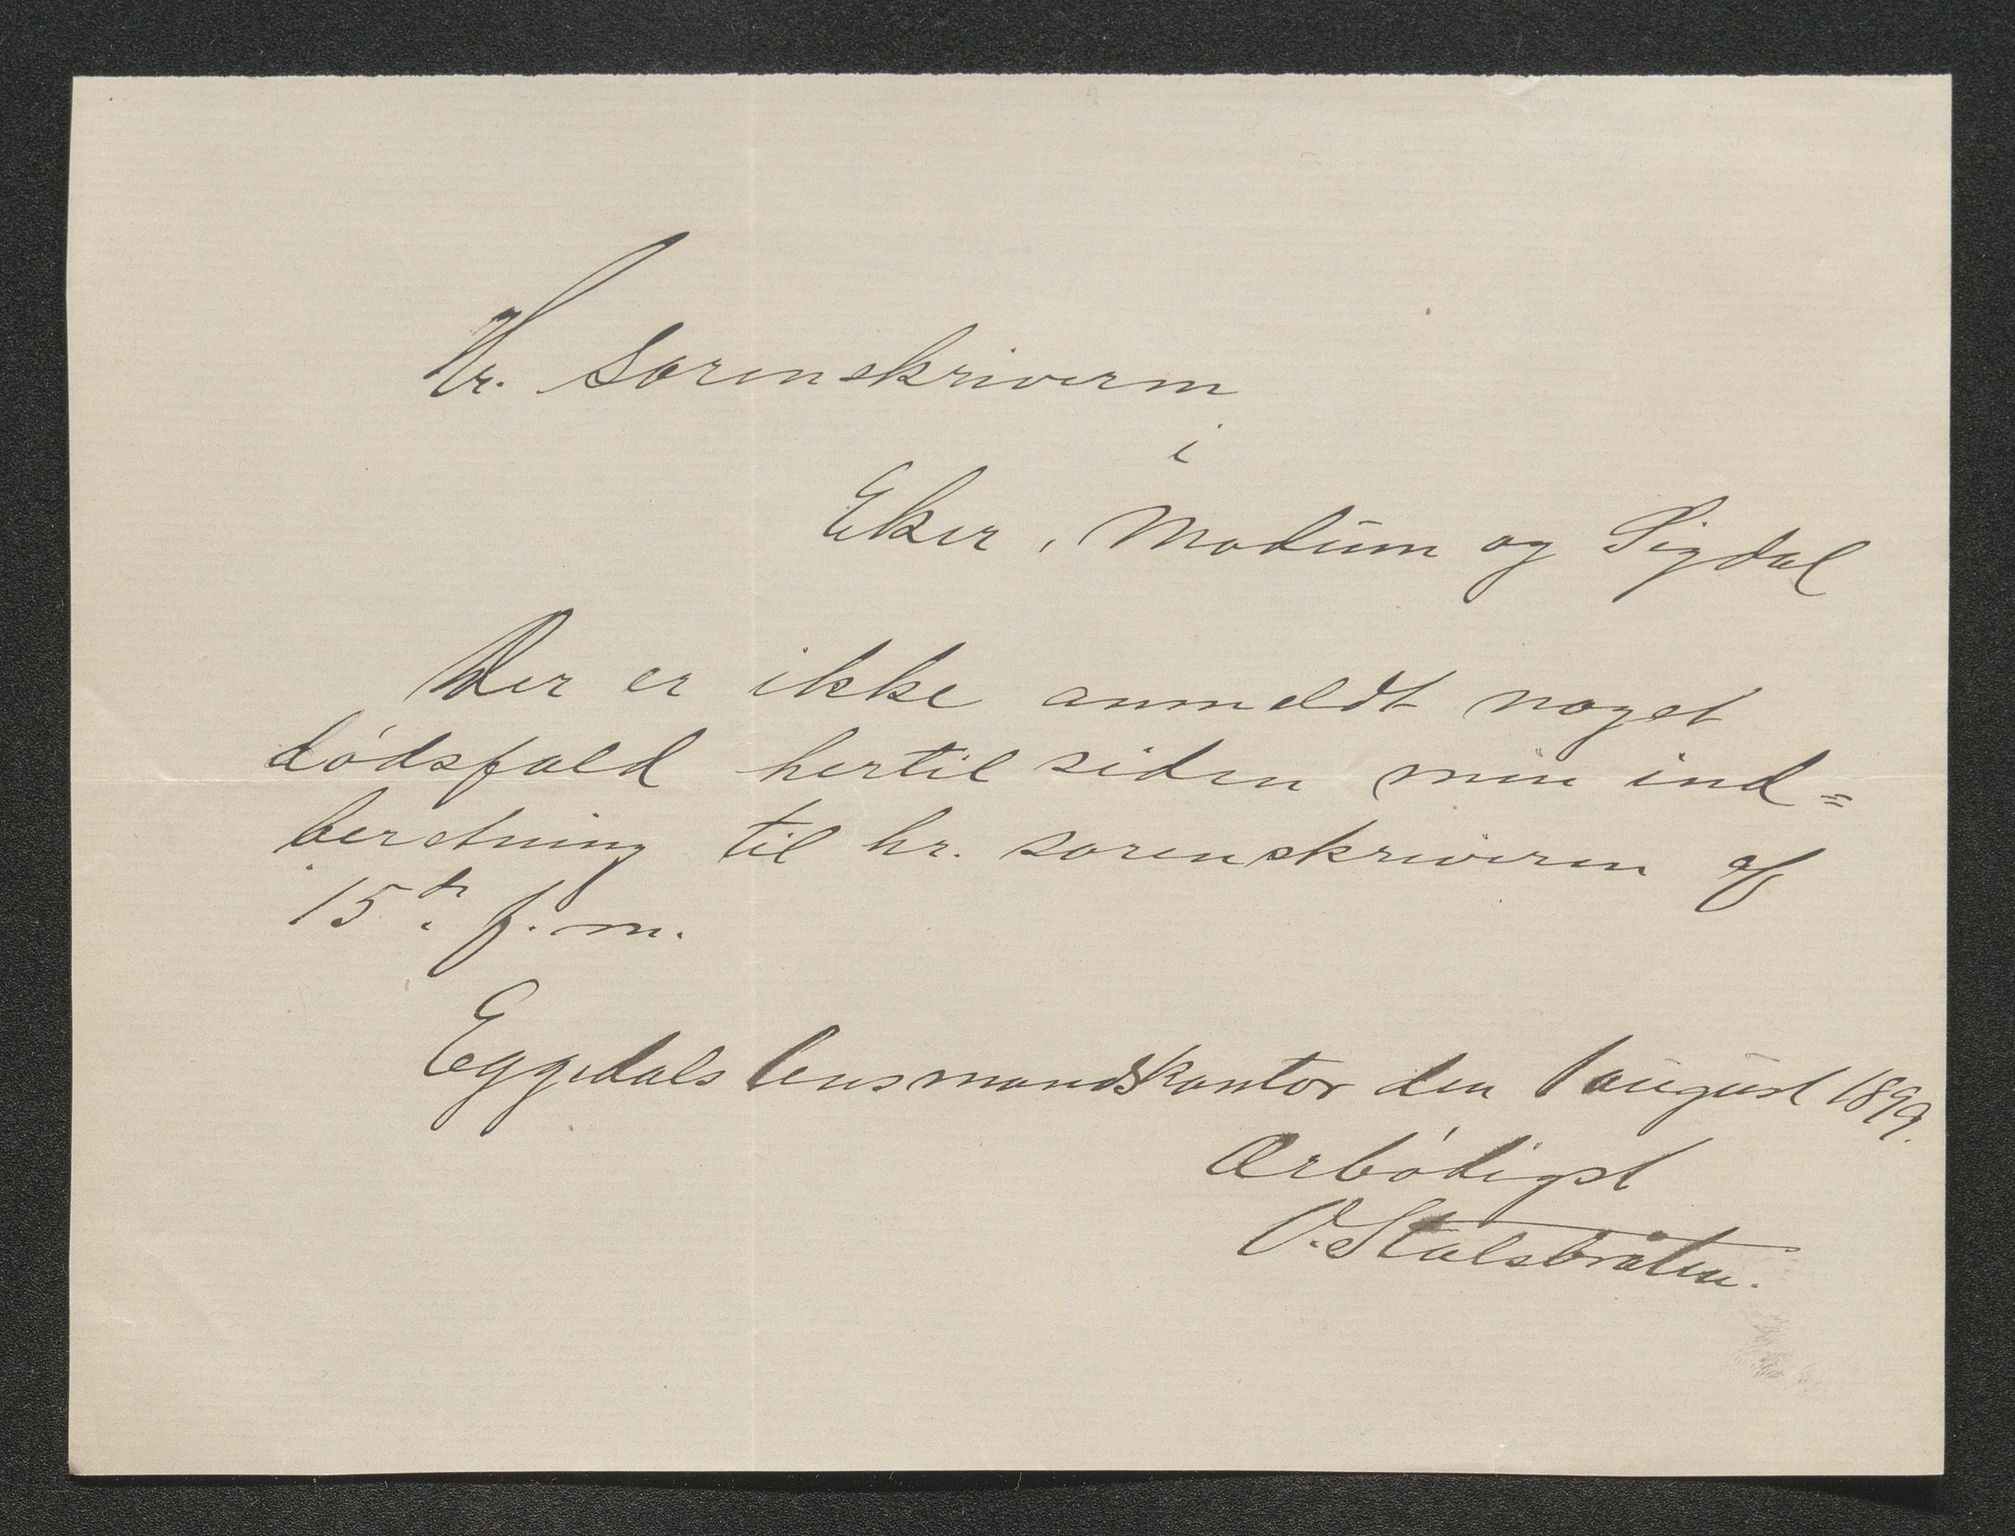 Hr. Sorenskriveren
i
Eker, Modum og Sigdal
Der er ikke anmeldt noget
dödsfald hertil siden min ind=
beretning til hr. sorenskriveren af
15de f. m.
Eggedals lensmandskontor den 1 august 1899.
Ærbödigst
O. Stalsbråten.